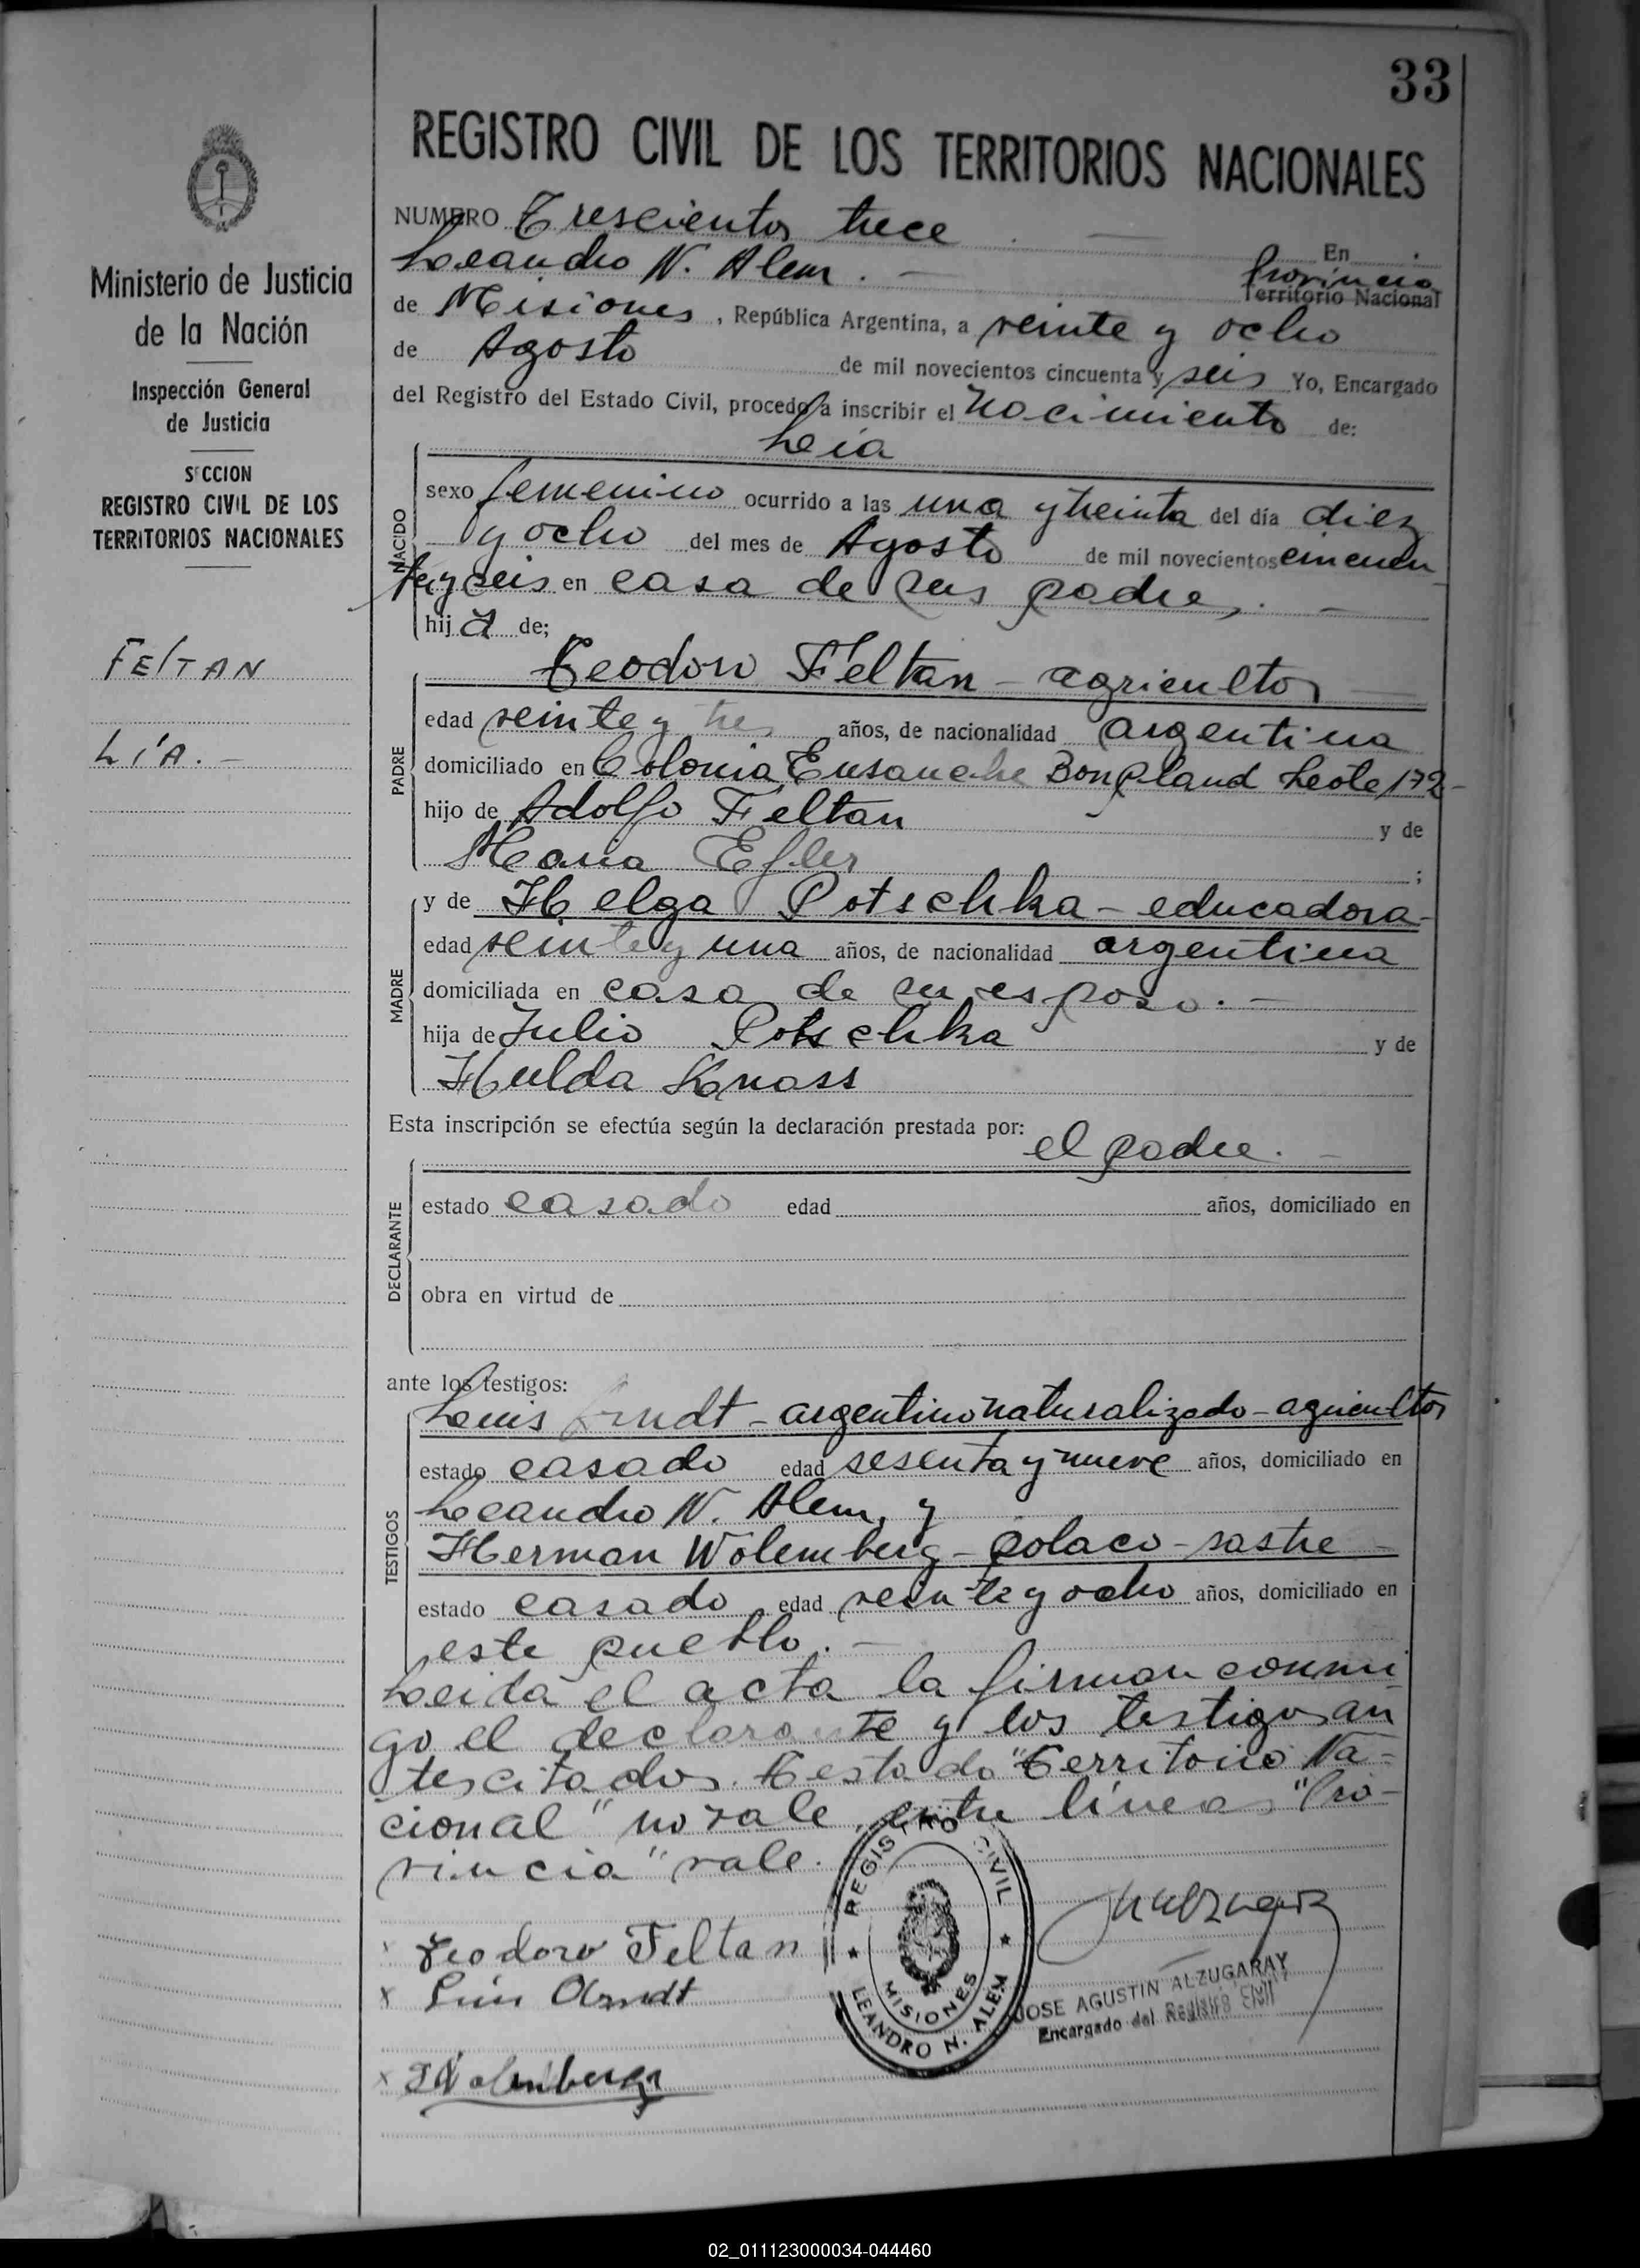 33
REGISTRO CIVIL DE LOS TERRITORIOS NACIONALES
Ministerio de Justicia
de la Nación
Inspección General
de Justicia
SECCION
REGISTRO CIVIL DE LOS
TERRITORIOS NACIONALES
FELTAN
LÍA. -
NUMERO Trescientos trece . — En
Leandro N. Alem. — Provincia
Territorio Nacional
de Misiones, República Argentina, a veinte y ocho
de Agosto de mil novecientos cincuenta y seis Yo, Encargado
del Registro del Estado Civil, procedo a inscribir el Nacimiento de:
NACIDO
Leia
sexo femenino ocurrido a las una y treinta del día diez
y ocho del mes de Agosto de mil novecientos cincuen
ta y seis en casa de sus padres. —
hija de;
PADRE
Teodoro Feltan - agricultor
edad veinte y tres años, de nacionalidad argentina
domiciliado en Colonia Ensanche Bonpland Leote 172-
hijo de Adolfo Feltan y de
Maria Efler ;
MADRE
y de Helga Potschka - educadora-
edad veinte y una años, de nacionalidad argentina
domiciliada en casa de su esposo. —
hija de Julio Potschka y de
Hulda Knass
Esta inscripción se efectúa según la declaración prestada por:
el padre. —
DECLARANTE
estado casado edad años, domiciliado en
obra en virtud de
ante los testigos:
TESTIGOS
Luis Arndt - argentino naturalizado - agricultor
estado casado edad sesenta y nueve años, domiciliado en
Leandro N. Alem, y
Herman Wolemberg - polaco - sastre -
estado casado edad veinte y ocho años, domiciliado en
este pueblo. —
Leida el acta la firman conmi
go el declarante y los testigos an
tescitados. Testado "Territorio Na-
cional" no vale, entre lineas "Pro-
vincia" vale.
x Teodoro Feltan
x Luis Arndt
REGISTRO CIVIL
MISIONES
LEANDRO N. ALEM
JOSE AGUSTIN ALZUGARAY
Encargado del Registro Civil
x Wolemberg
02_011123000034-044460